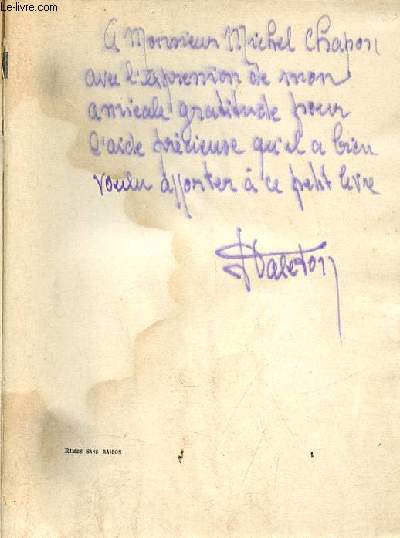 Le-livre.com
A Monsieur Michel Chapon
avec l'expression de mon
amicale gratitude pour
l'aide précieuse qu'il a bien
voulu apporter à ce petit livre